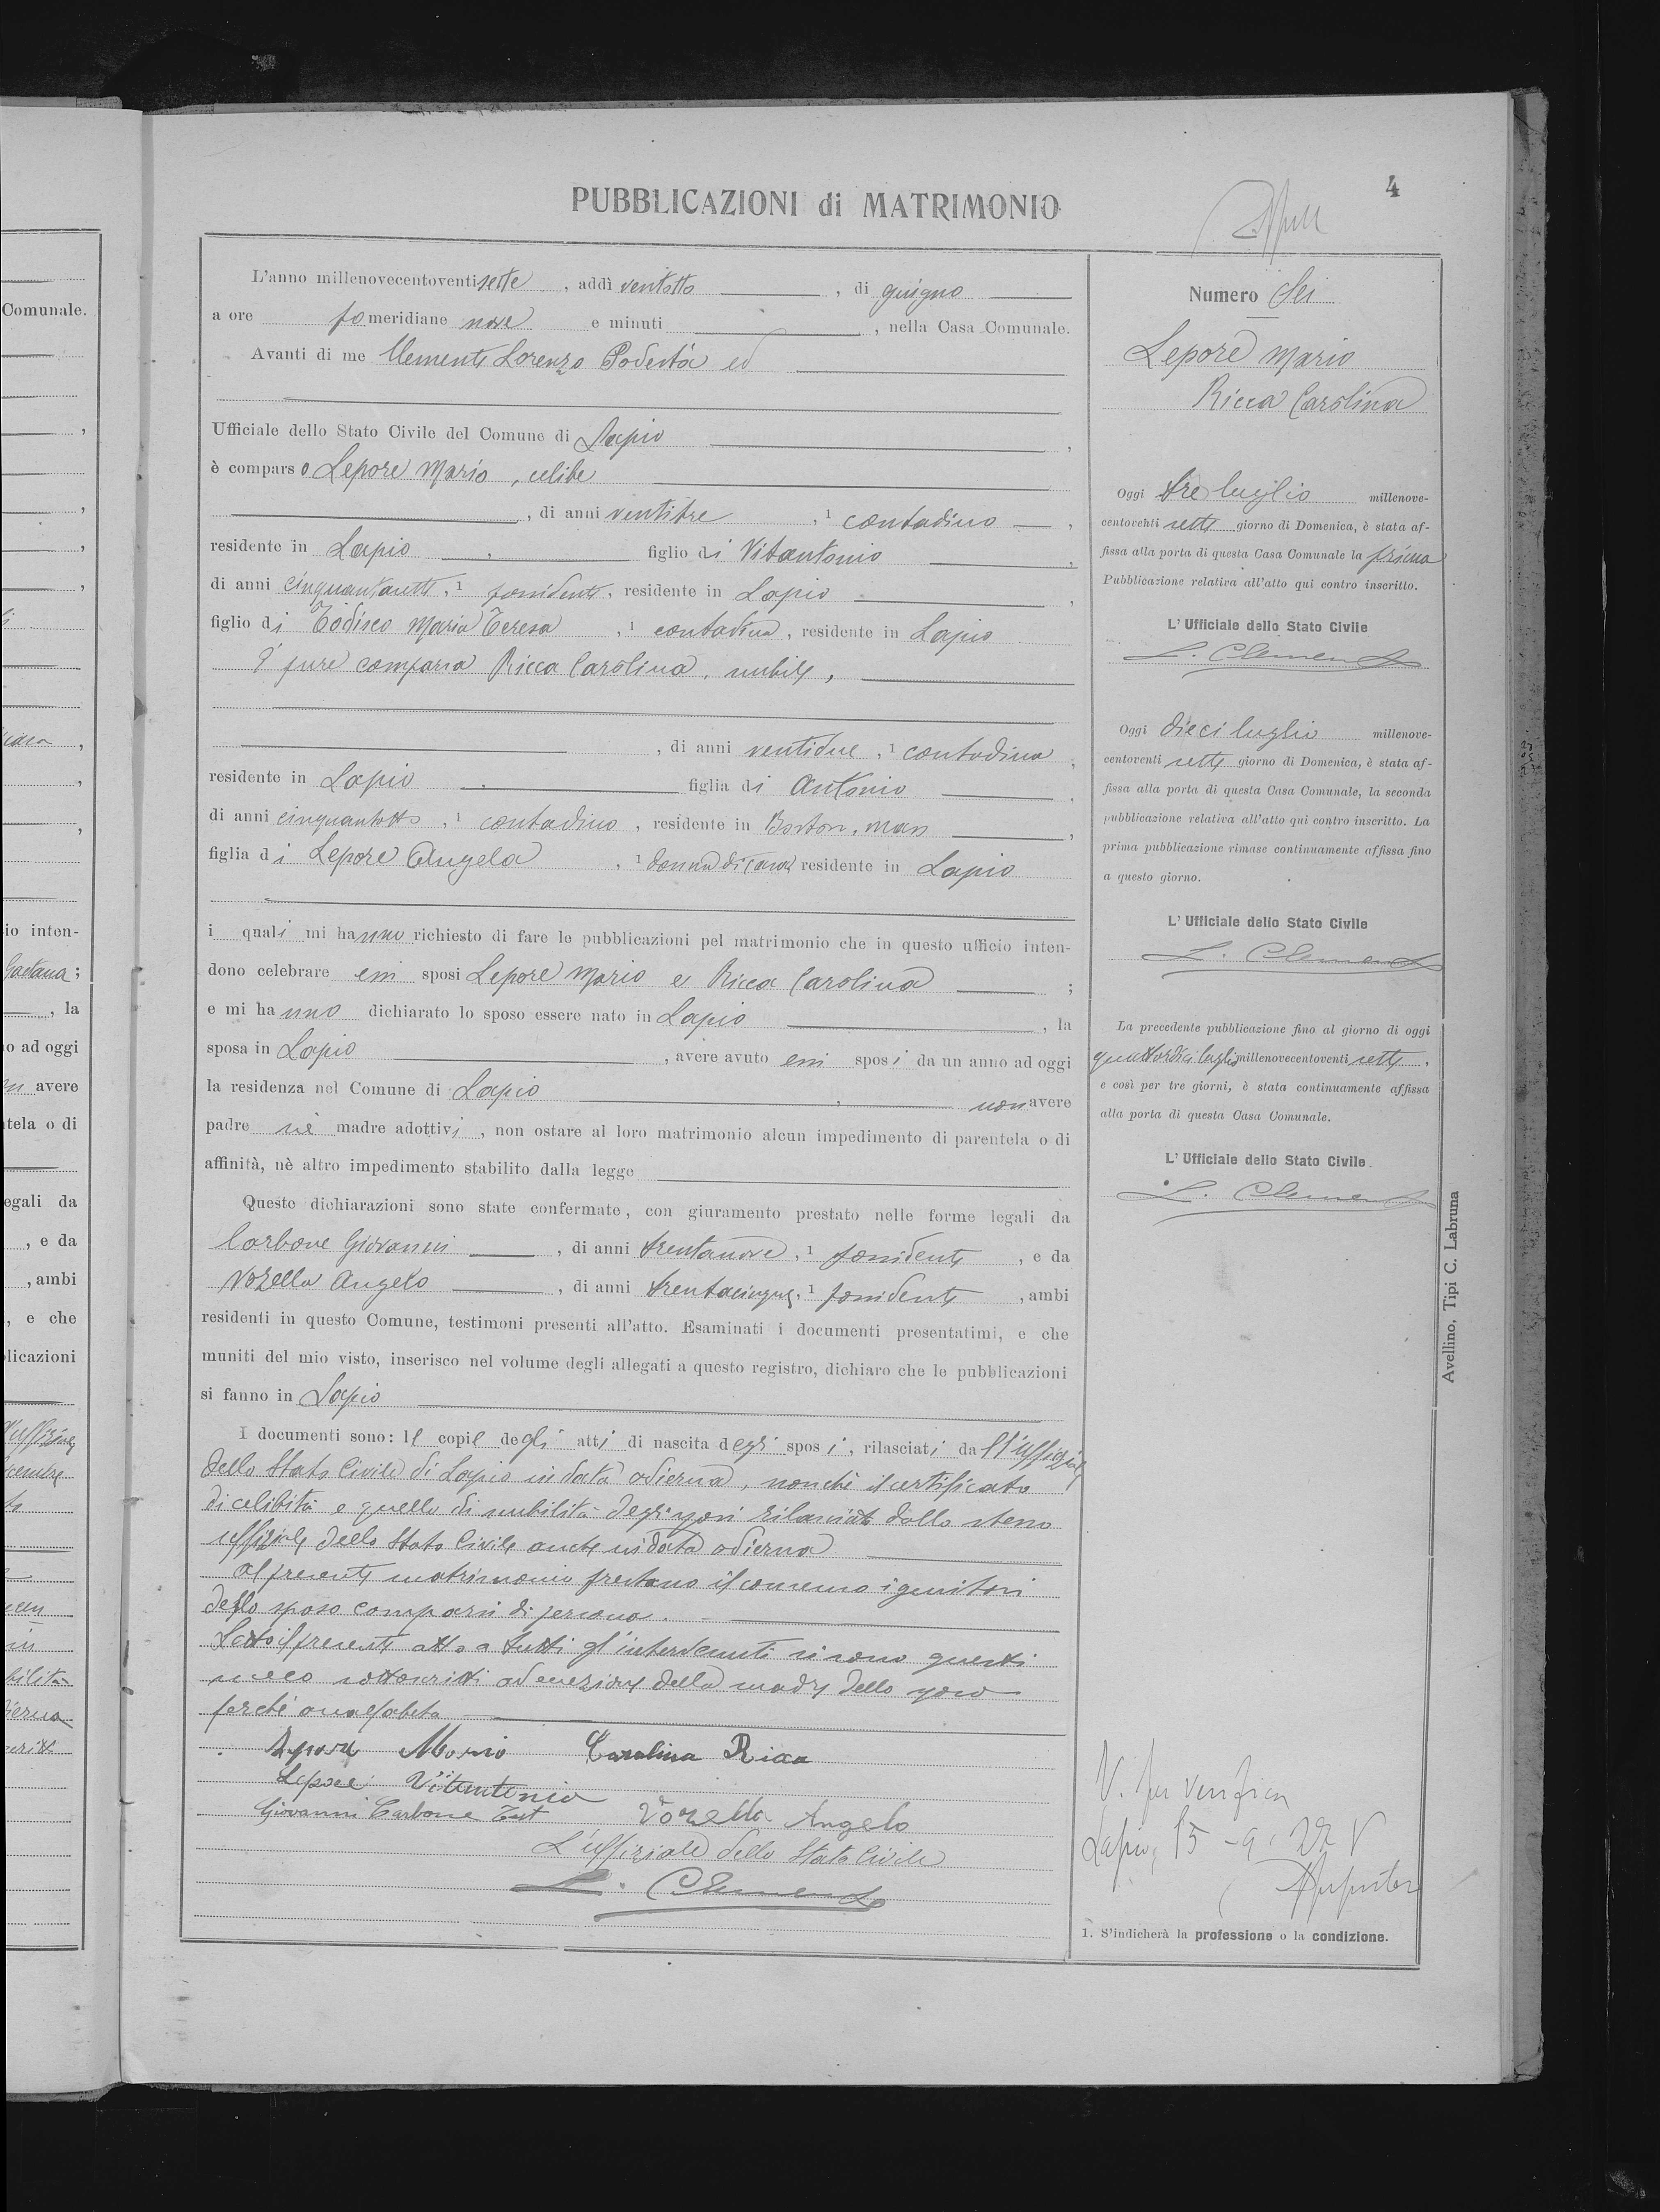 Comunale.
io inten-
Gaetana;
, la
o ad oggi
avere
tela o di
egali da
, e da
, ambi
, e che
blicazioni
PUBBLICAZIONI di MATRIMONIO
4
L'anno millenovecentoventisette, addì ventotto, di giugno
a ore pomeridiane nove e minuti, nella Casa Comunale.
Avanti di me Clemente Lorenzo Podestà ed
Ufficiale dello Stato Civile del Comune di Lapio,
è comparso Lepore Mario, celibe
, di anni ventitre, 1 contadino,
residente in Lapio, figlio di Vitantonio,
di anni cinquantasette, 1 possidente, residente in Lapio,
figlio di Todisco Maria Teresa, 1 contadina, residente in Lapio
È pure comparsa Ricca Carolina, nubile,
, di anni ventidue, 1 contadina,
residente in Lapio, figlia di Antonio,
di anni cinquantotto, 1 contadino, residente in Boston, Mass,
figlia di Lepore Angela, 1 donna di casa, residente in Lapio
i quali mi hanno richiesto di fare le pubblicazioni pel matrimonio che in questo ufficio inten-
dono celebrare essi sposi Lepore Mario e Ricca Carolina;
e mi hanno dichiarato lo sposo essere nato in Lapio, la
sposa in Lapio, avere avuto essi sposi da un anno ad oggi
la residenza nel Comune di Lapio, non avere
padre nè madre adottivi, non ostare al loro matrimonio alcun impedimento di parentela o di
affinità, nè altro impedimento stabilito dalla legge
Queste dichiarazioni sono state confermate, con giuramento prestato nelle forme legali da
Carbone Giovanni, di anni trentanove, 1 possidente, e da
Vozella Angelo, di anni trentacinque, 1 possidente, ambi
residenti in questo Comune, testimoni presenti all'atto. Esaminati i documenti presentatimi, e che
muniti del mio visto, inserisco nel volume degli allegati a questo registro, dichiaro che le pubblicazioni
si fanno in Lapio
I documenti sono: le copie degli atti di nascita degli sposi, rilasciati dall'uffiziale
dello Stato Civile di Lapio in data odierna, nonchè il certificato
di celibità e quello di nubilità degli sposi rilasciati dallo stesso
uffiziale dello Stato Civile anche in data odierna
Al presente matrimonio prestano il consenso i genitori
dello sposo comparsi di persona.
Letto il presente atto a tutti gl'intervenuti si sono questi
meco sottoscritti ad eccezione della madre dello sposo
perchè analfabeta
Lepore Mario Carolina Ricca
Lepore Vitantonio
Giovanni Carbone Test Vozella Angelo
L'uffiziale dello Stato Civile
L. Clemente
Numero Sei
Lepore Mario
Ricca Carolina
Oggi tre luglio millenove-
centoventisette giorno di Domenica, è stata af-
fissa alla porta di questa Casa Comunale la prima
Pubblicazione relativa all'atto qui contro inscritto.
L'Ufficiale dello Stato Civile
L. Clemente
Oggi dieci luglio millenove-
centoventisette giorno di Domenica, è stata af-
fissa alla porta di questa Casa Comunale, la seconda
pubblicazione relativa all'atto qui contro inscritto. La
prima pubblicazione rimase continuamente affissa fino
a questo giorno.
L'Ufficiale dello Stato Civile
L. Clemente
La precedente pubblicazione fino al giorno di oggi
quattordici luglio millenovecentoventisette,
e così per tre giorni, è stata continuamente affissa
alla porta di questa Casa Comunale.
L'Ufficiale dello Stato Civile
L. Clemente
V. per verifica
Lapio, 15-9-27 V
1. S'indicherà la professione o la condizione.
Avellino, Tipi C. Labruna